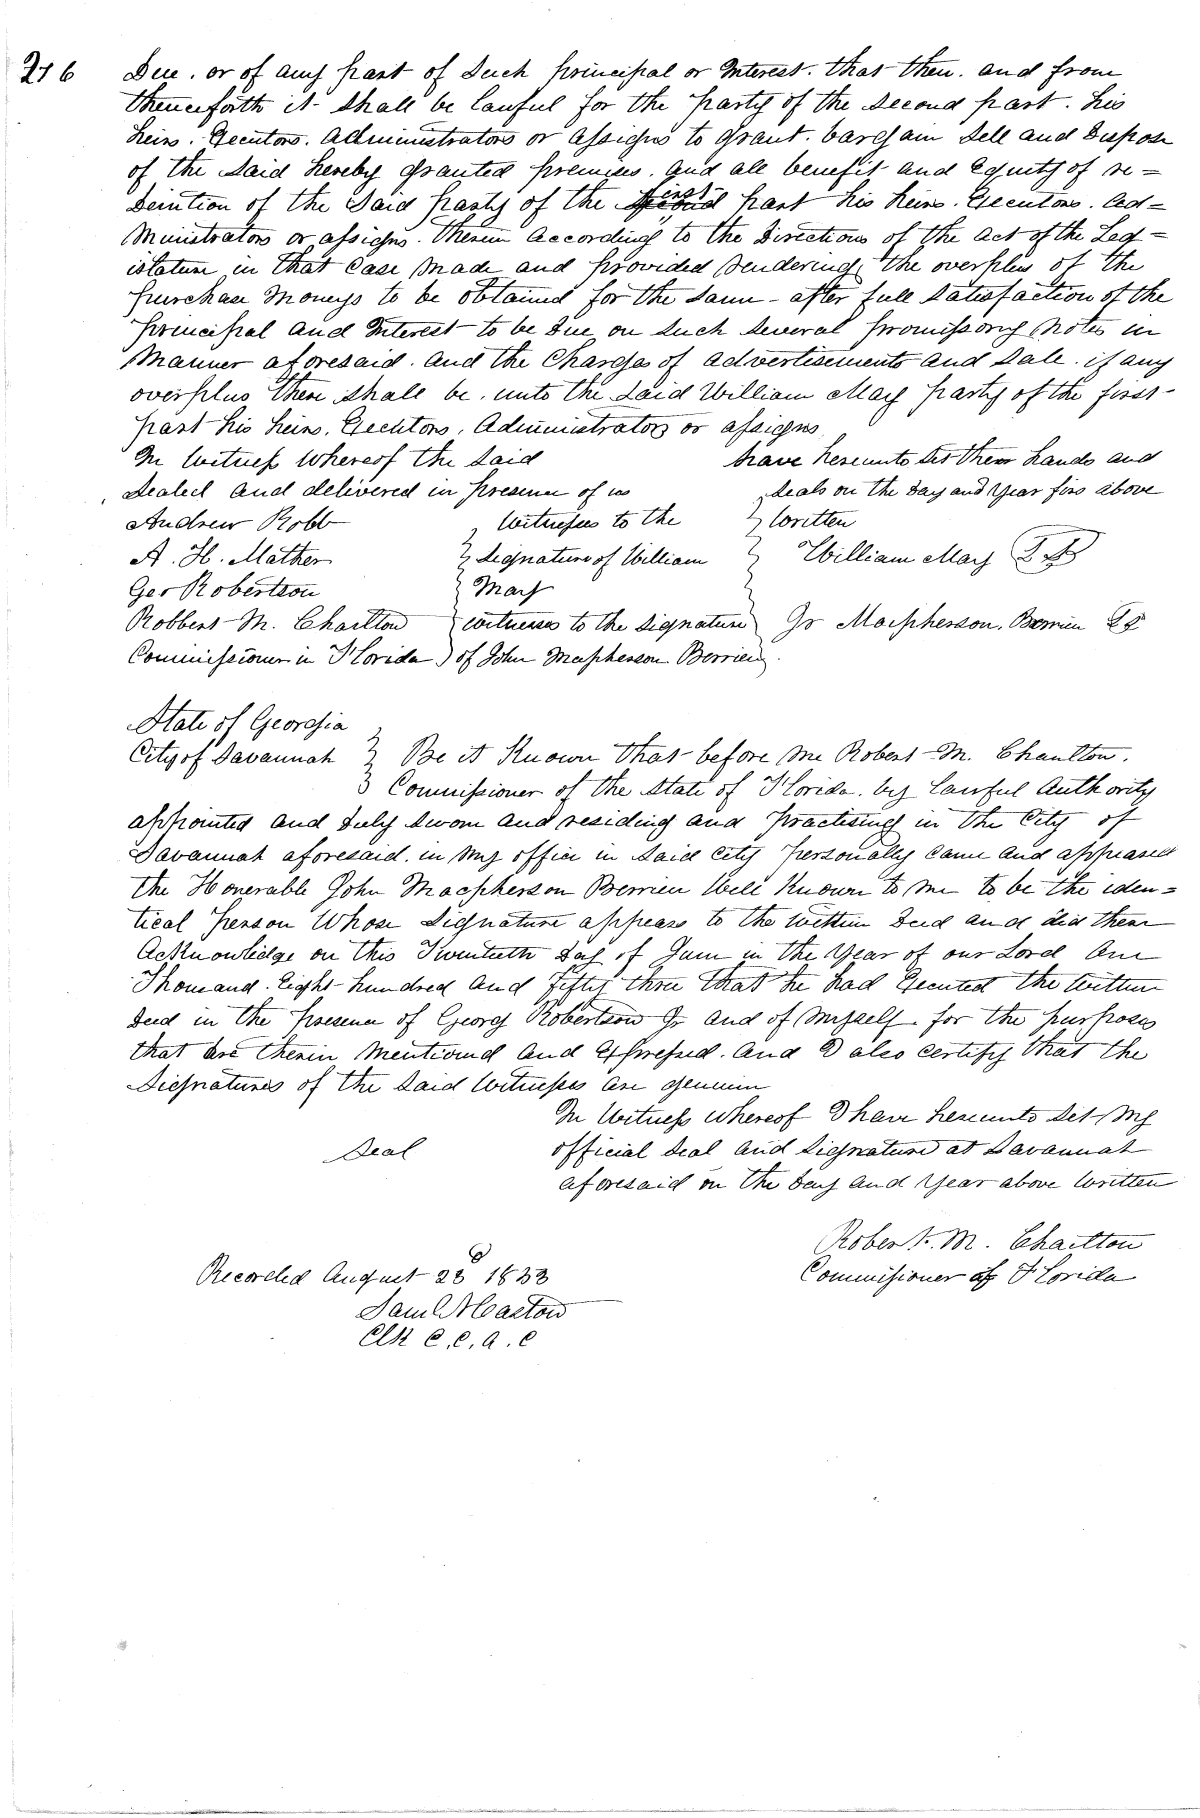 276
Due. or of any part of Such principal or Interest. that then. and from
thenceforth it shall be lawful for the party of the second part. his
heirs. Executors. Administrators or assigns to grant. bargain Sell and Dispose
of the Said hereby granted premises. and all benefit and Equity of re=
Demtion of the Said party of the first part his heirs. Executors. Ad=
Ministrators or assigns. Therein According to the Directions of the Act of the Leg=
islature in that Case Made and provided rendering the overplus of the
purchase Moneys to be obtained for the Same - after full Satisfaction of the
principal and Interest to be due on Such Several promissory Notes in
Manner aforesaid. and the Charges of advertisements and Sale. if any
overplus there shall be. unto the Said William May party of the first
part his heirs. Executors. Administrators or assigns
In Witness Whereof the Said have hereunto Set their hands and
Sealed and delivered in presence of us Seals on the Day and Year firs above
Andrew Robb Witnesses to the Written
A. H. Mather Signature of William William May
Geo Robertson May
Robbert M. Charlton witnesses to the Signature Jo Macpherson. Berrien LS
Commissioner in Florida of John Macphersom Berrien
State of Georgia
City of Savannah Be it Known that before me Robert M. Charlton.
Commissioner of the State of Florida. by Lawful Authority
appointed and duly Sworn and residing and Practising in the City of
Savannah aforesaid. in My office in Said City personally Came and appeared
the Honerable John Macpherson Berrien Well Known to me to be the iden=
tical person Whose Signature appears to the within Deed and did then
Acknowledge on this Twentieth Day of June in the Year of our Lord One
Thousand. Eight hundred and fifty three that he had Executed the within
Deed in the presence of George Robertson Jr and of Myself. for the purposes
that are therein Mentioned and Expressed. And I also Certify that the
Signatures of the Said Witnesses are genuine
In Witness Whereof I have hereunto Set My
Seal official Seal and Signature at Savannah
aforesaid on the Day and Year above Written
Robert. M. Charlton
Commisioner of Florida
Recorded August 23d 1853
Clk C. C. A. C